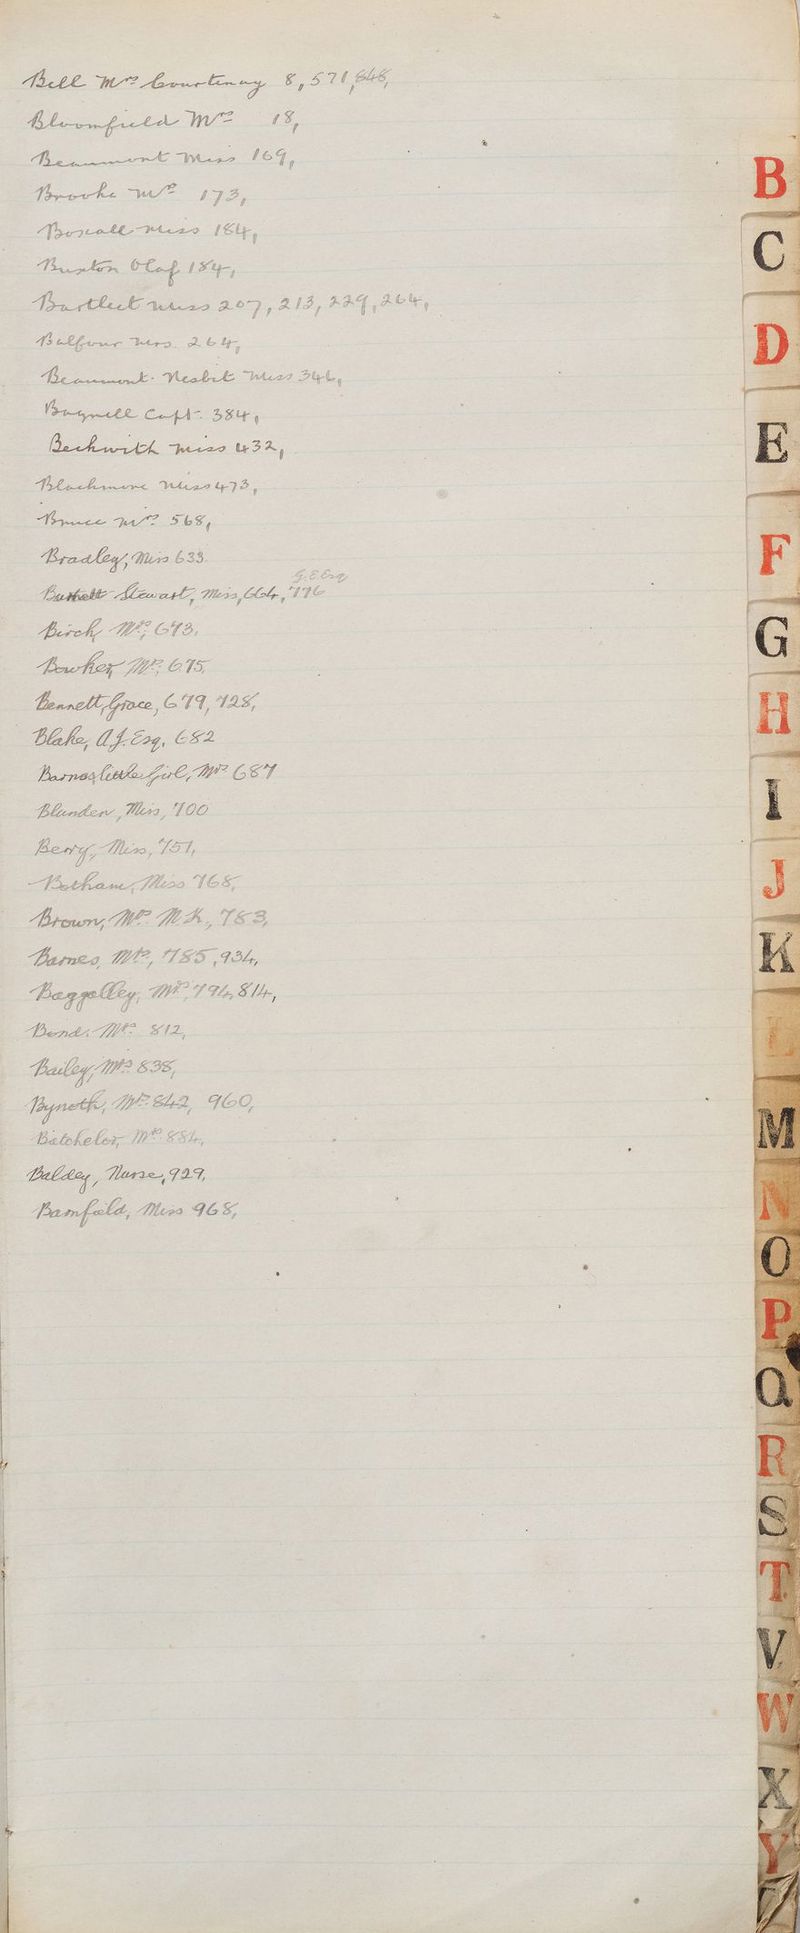 Bell Mrs Courtenay 8, 571, 848,
Bloomfield Mrs 18,
Beaumont Miss 169,
Brooke Mrs 173,
Boxall Miss 184,
Buxton Olaf 184,
Bartleet Miss 207, 213, 229, 264,
Balfour Mrs 264,
Beaumont-Nesbit Miss 346,
Bagnell Capt. 384,
Beckwith Miss 432,
Blackmore Miss 473,
Bruce Mrs 568,
Bradley, Miss 633.
G.E. Esq
Stewart, Miss, 664, 776
Birch, Mrs, 673,
Bowker, Mrs, 675,
Bennett, Grace, 679, 728,
Blake, A.J. Esq. 682
Barnes little Girl, Mrs 687
Blunden, Miss, 700
Berry, Miss, 751,
Botham, Miss 768,
Brown, Mrs M.K., 783,
Barnes, Mrs, 785, 934,
Baggalley, Mrs, 794, 814,
Bond, Mrs 812,
Bailey, Mrs 838,
Bynoth, Mrs 842, 960,
Batchelor, Mrs 884,
Baldey, Nurse, 929,
Bamfield, Miss 968,
B
C
D
E
F
G
H
I
J
K
L
M
N
O
P
Q
R
S
T
V
W
X
Y